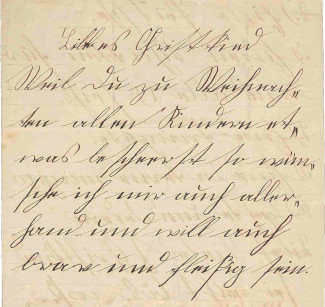 Liebes Christkind
Weil Du zu Weihnach-
ten allen Kindern et-
was bescheerst so wün-
sche ich mir auch aller-
hand und will auch
brav und fleißig sein.